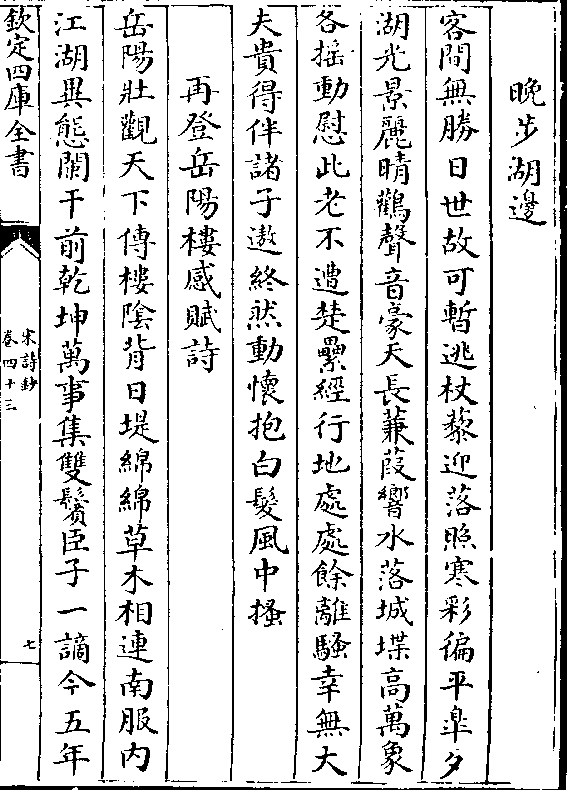 晚步湖邊
客間無勝日世故可暫逃杖藜迎落照寒彩徧平臯夕
湖光景麗晴鸛聲音豪天長蒹葭響水落城堞高萬象
各搖動慰此老不遭楚纍經行地處處餘離騷幸無大
夫貴得伴諸子遨終然動懷抱白髮風中搔
再登岳陽樓感賦詩
岳陽壯觀天下傳樓陰背日堤綿綿草木相連南服内
江湖異態闌干前乾坤萬事集雙鬢臣子一謫今五年
欽定四庫全書
宋詩鈔
卷四十三
七